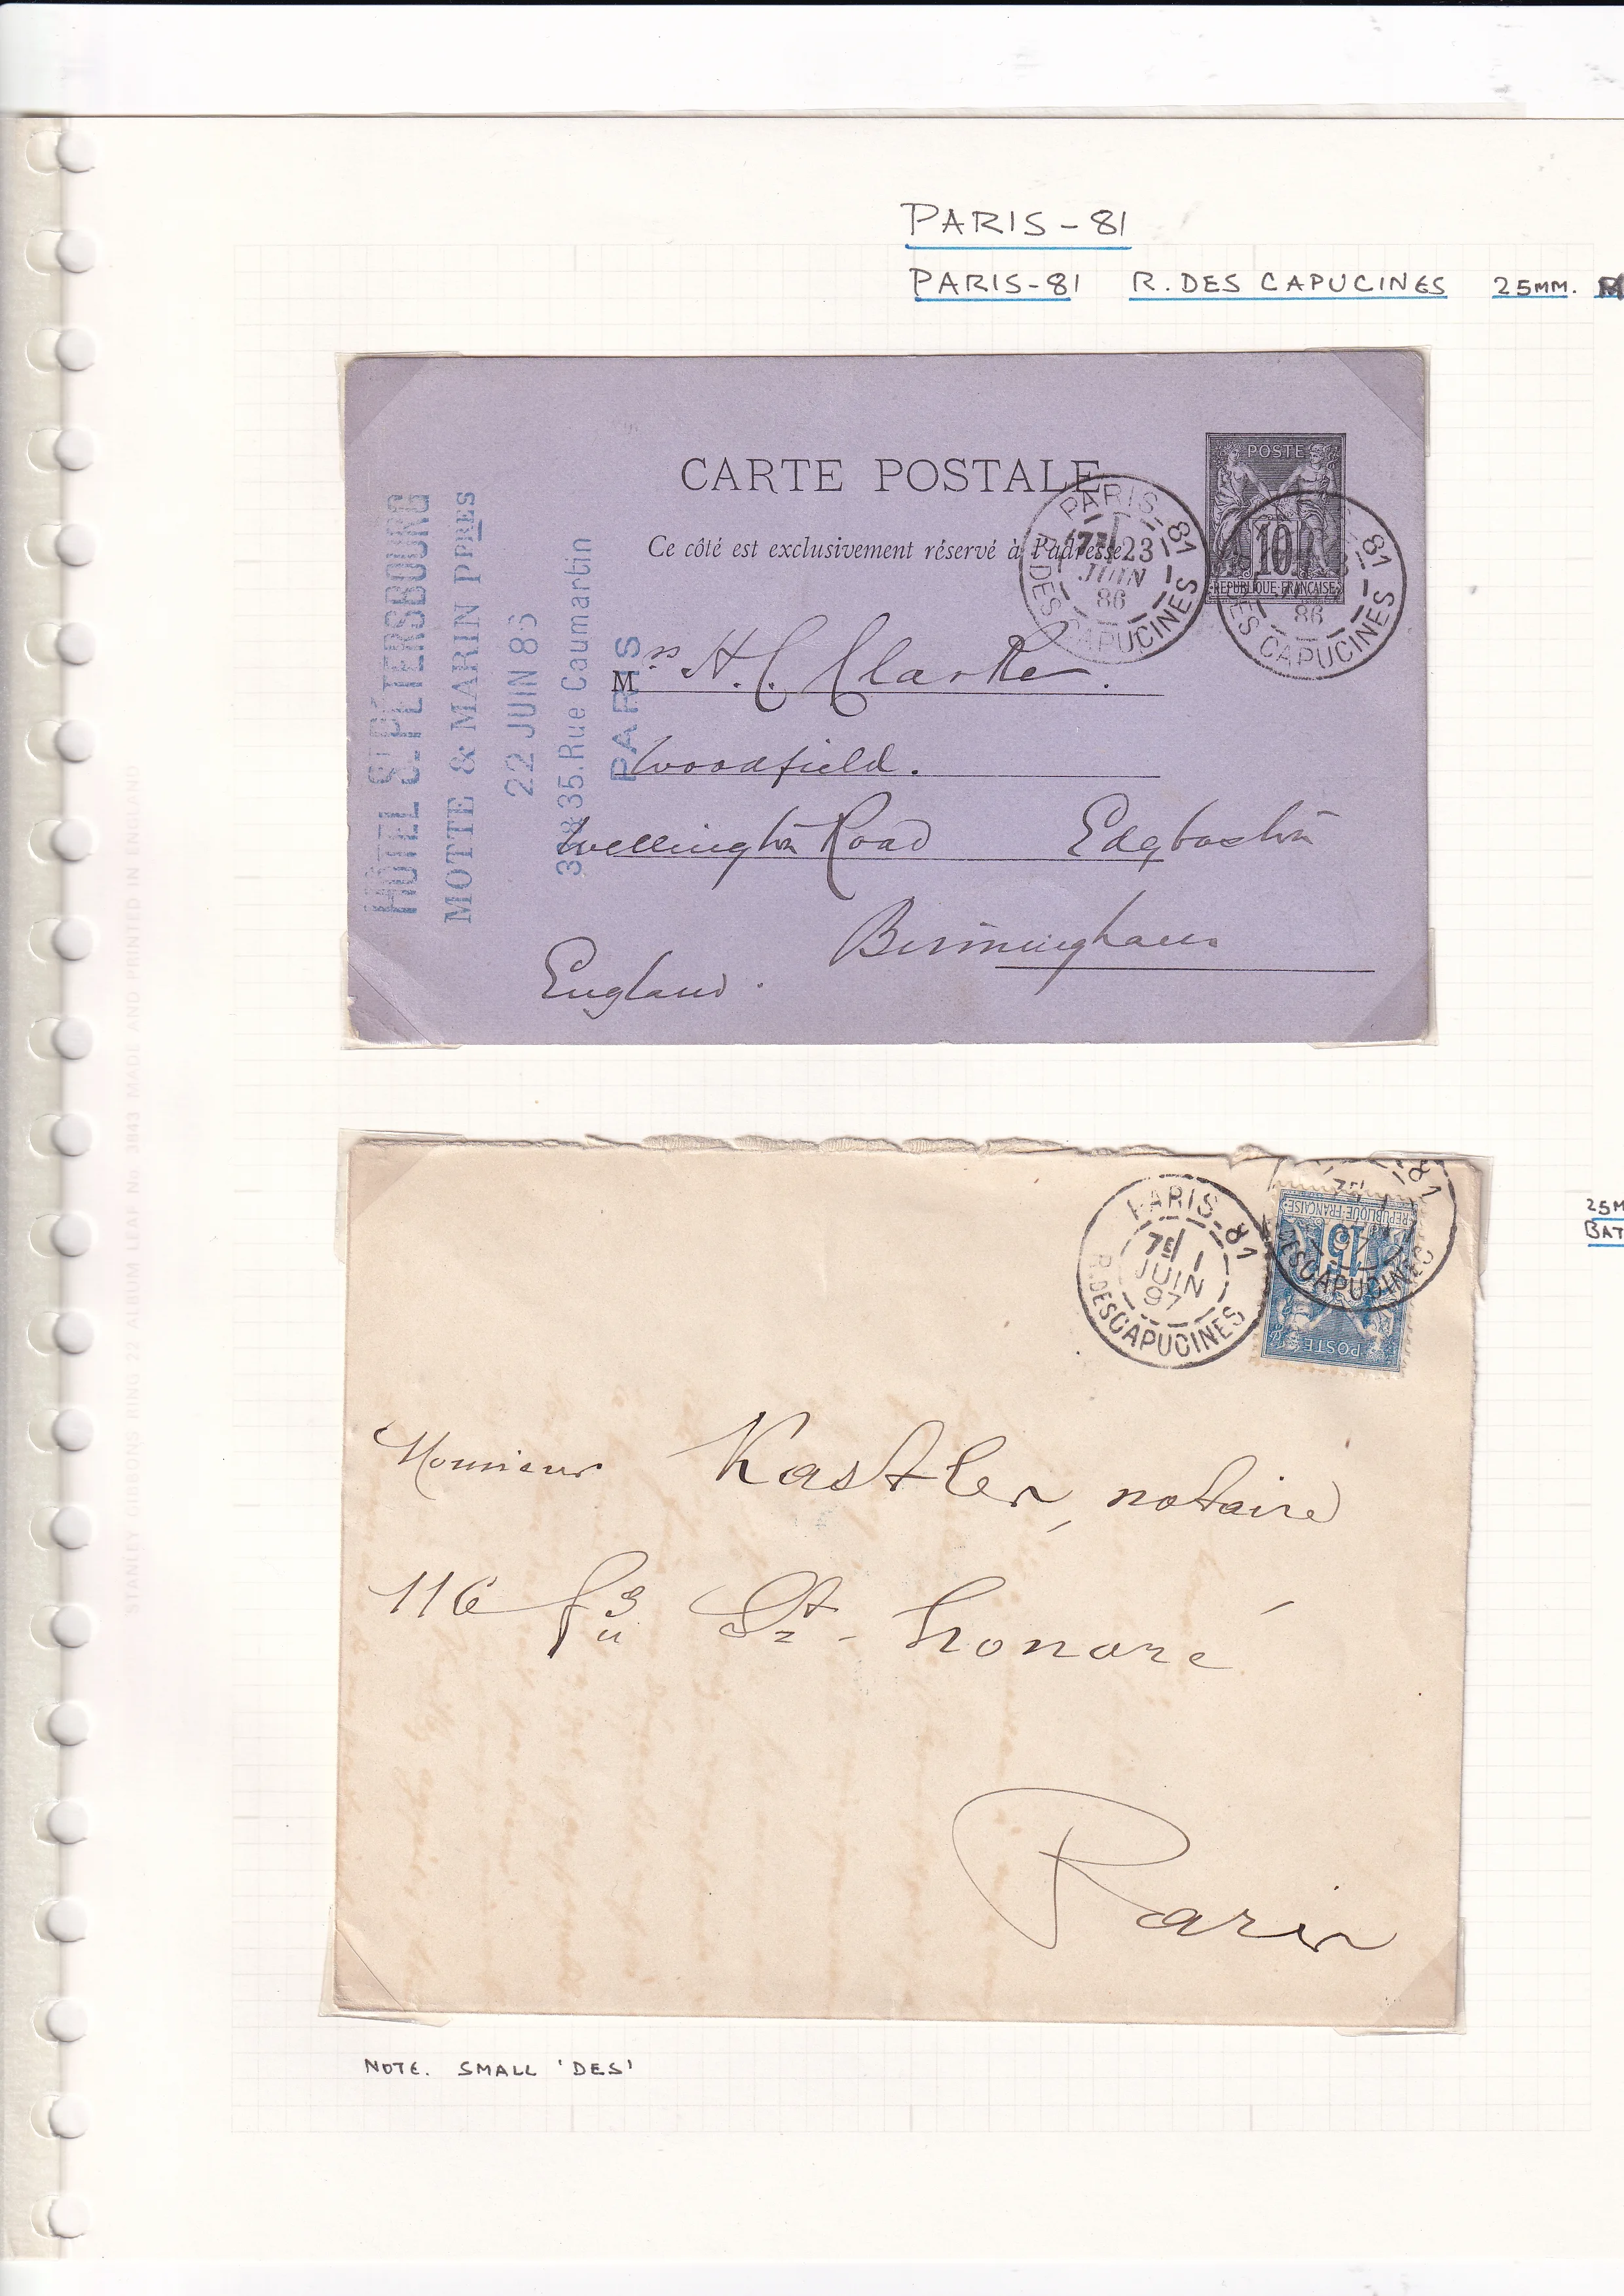 PARIS-81
PARIS-81 R. DES CAPUCINES 25MM.
CARTE POSTALE
Ce côté est exclusivement réservé à l'adresse
POSTE
10
REPUBLIQUE FRANÇAISE
PARIS-81
7E 23
JUIN
86
DES CAPUCINES
81
86
DES CAPUCINES
HÔTEL ST PÉTERSBOURG
MOTTE & MARIN PPRES
22 JUIN 86
35. Rue Caumartin
PARIS
Mrs H. C. Clarke.
Woodfield.
Wellington Road Edgbaston
Birmingham
England.
25M
BAT
PARIS-81
7E 1
JUIN
97
R. DES CAPUCINES
81
7E
97
DES CAPUCINES
REPUBLIQUE FRANÇAISE
15
POSTE
Monsieur Kastler, notaire
116 fg St-honoré
Paris
NOTE. SMALL 'DES'
STANLEY GIBBONS RING 22 ALBUM LEAF No. 3843 MADE AND PRINTED IN ENGLAND